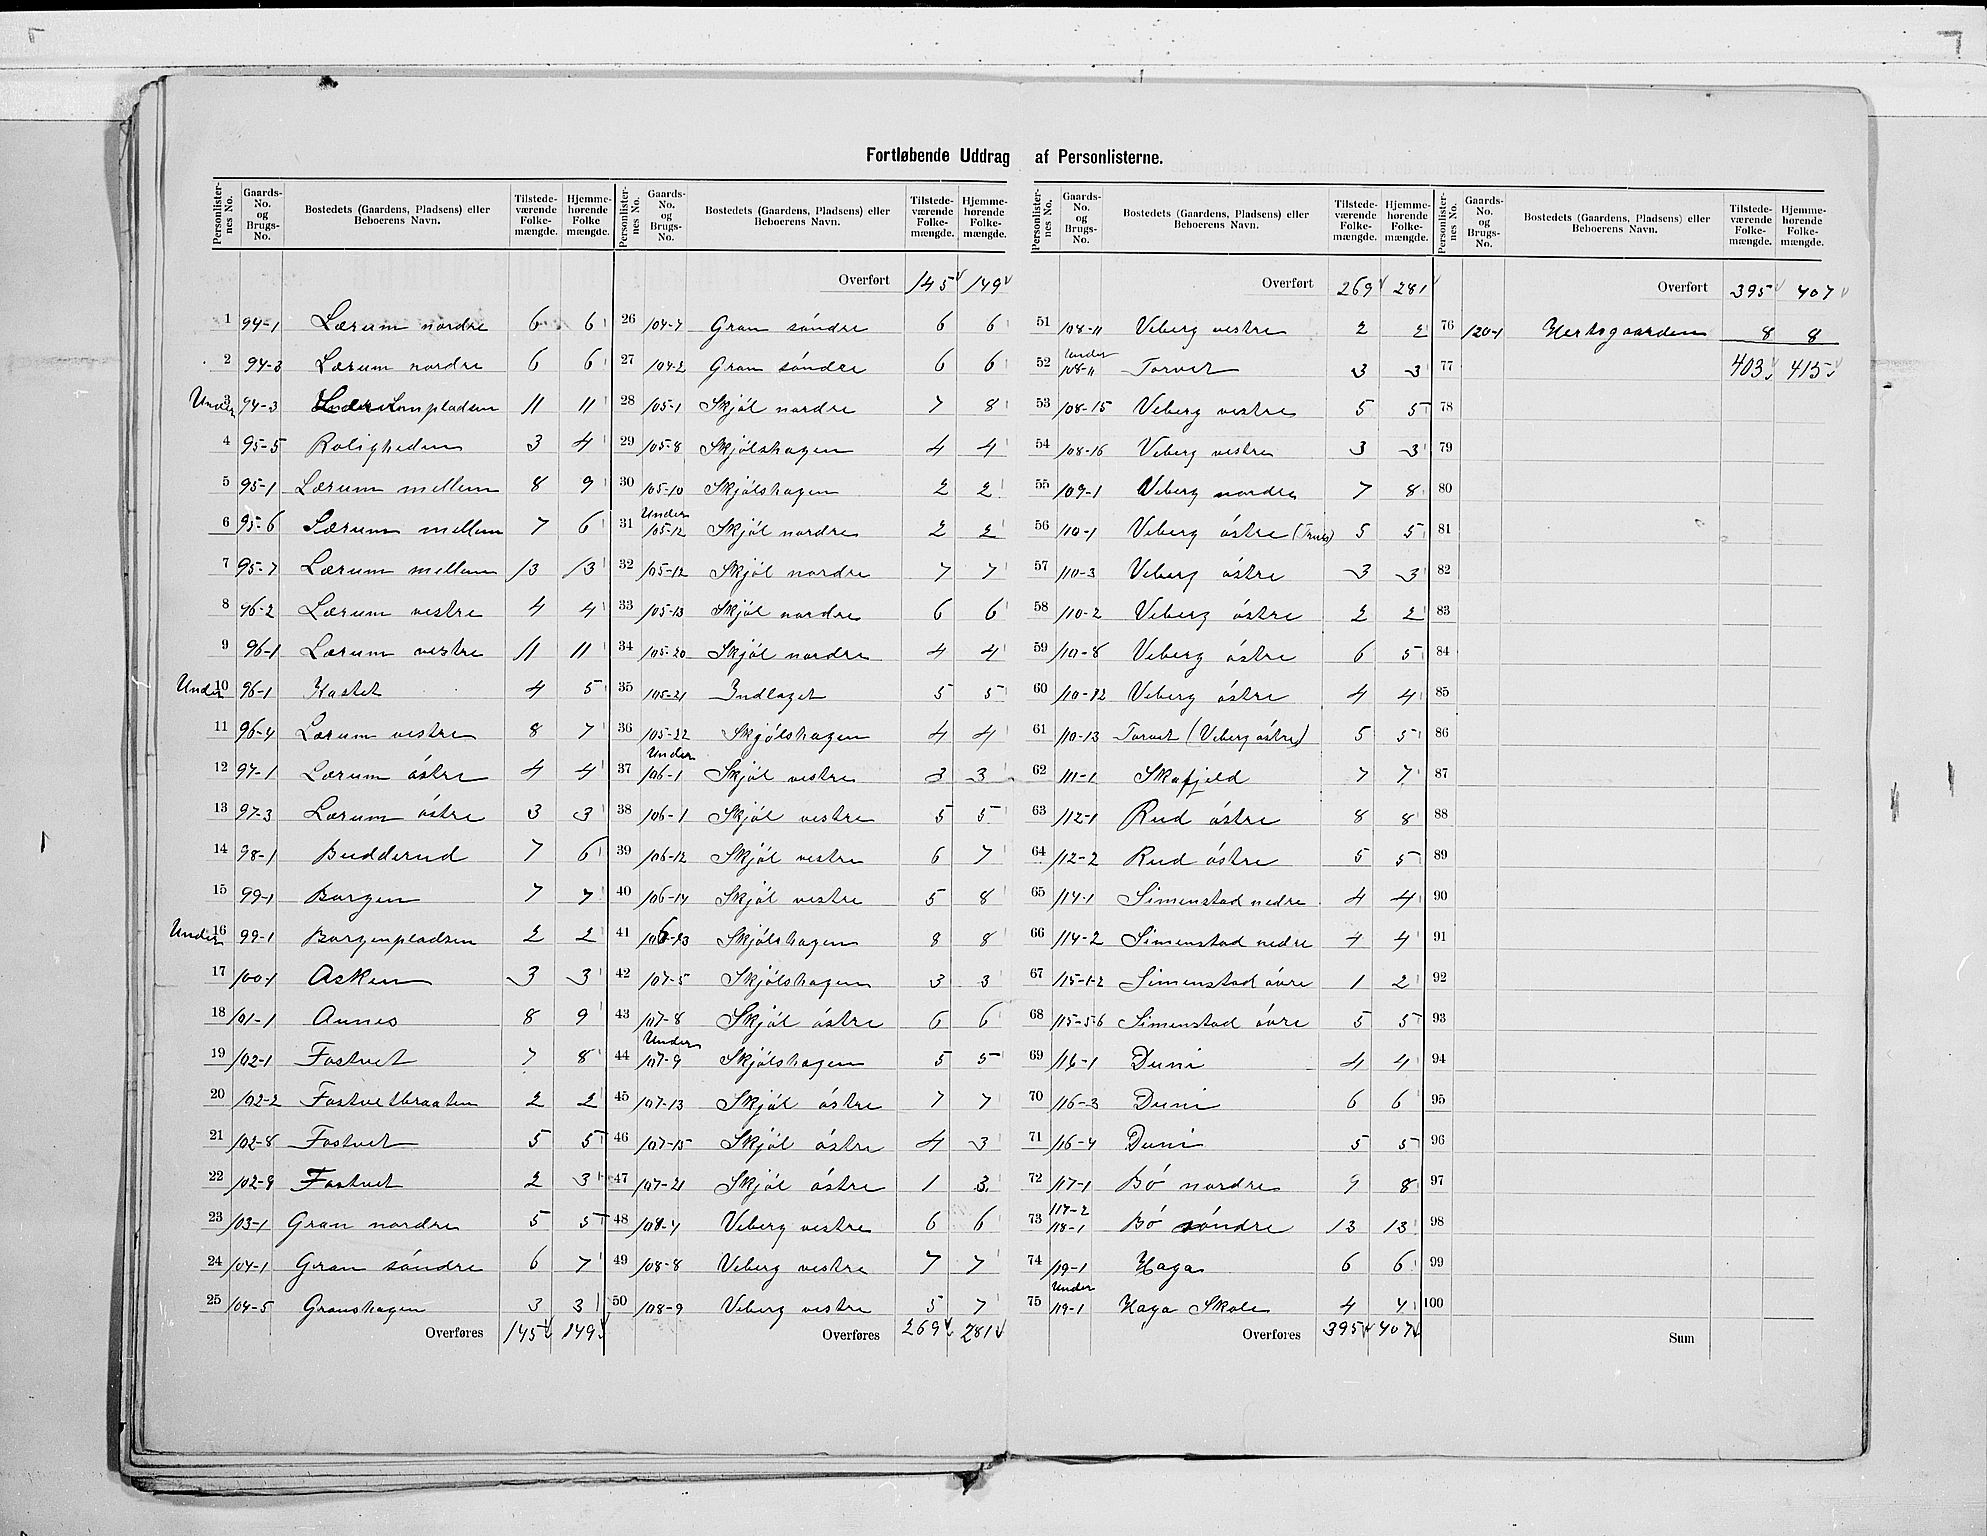 Fortløbende Uddrag af Personlisterne.
Personlister-nes No. | Gaards-No. og Brugs-No. | Bostedets (Gaardens, Pladsens) eller Beboerens Navn. | Tilstede-værende Folke-mængde. | Hjemme-hørende Folke mængde.
1 94-1 Lærum nordre 6 6
2 94-3 Lærum nordre 6 6
Under 3 94-3 11 11
4 95-5 Roligheden 3 4
5 95-1 Lærum mellem 8 9
6 95-6 Lærum mellem 7 6
7 95-7 Lærum mellem 13 13
8 96-2 Lærum vestre 4 4
9 96-1 Lærum vestre 11 11
Under 10 96-1 Kastet 4 5
11 96-4 Lærum vestre 8 7
12 97-1 Lærum östre 4 4
13 97-3 Lærum östre 3 3
14 98-1 Budderud 7 6
15 99-1 Borgen 7 7
Under 16 99-1 Borgenpladsen 2 2
17 100-1 Asken 3 3
18 101-1 Aunes 8 9
19 102-1 Fostvet 7 8
20 102-2 Fostvetbraaten 2 2
21 102-8 Fostvet 5 5
22 102-9 Fostvet 2 3
23 103-1 Gran nordre 5 5
24 104-1 Gran söndre 6 7
25 104-5 Granshagen 3 3
Overføres 145 149
Personlister-nes No. | Gaards-No. og Brugs-No. | Bostedets (Gaardens, Pladsens) eller Beboerens Navn. | Tilstede-værende Folke-mængde. | Hjemme-hørende Folke-mængde.
Overført 145 149
26 104-7 Gran söndre 6 6
27 104-2 Gran söndre 6 6
28 105-1 Skjöl nordre 7 8
29 105-8 Skjölshagen 4 4
30 105-10 Skjölshagen 2 2
31 Under 105-12 Skjöl nordre 2 2
32 105-12 Skjöl nordre 7 7
33 105-13 Skjöl nordre 6 6
34 105-20 Skjöl nordre 4 4
35 105-21 Indlaget 5 5
36 105-22 Skjölshagen 4 4
37 Under 106-1 Skjöl vestre 3 3
38 106-1 Skjöl vestre 5 5
39 106-12 Skjöl vestre 6 7
40 106-14 Skjöl vestre 5 8
41 106-23 Skjölshagen 8 8
42 107-5 Skjölshagen 3 3
43 107-8 Skjöl östre 6 6
44 Under 107-9 Skjölshagen 5 5
45 107-13 Skjöl östre 7 7
46 107-15 Skjöl östre 4 3
47 107-21 Skjöl östre 1 3
48 108-4 Veberg vestre 6 6
49 108-8 Veberg vestre 7 7
50 108-9 Veberg vestre 5 7
Overføres 269 281
Personlister-nes No. | Gaards-No. og Brugs-No. | Bostedets (Gaardens, Pladsens) eller Beboerens Navn. | Tilstede-værende Folke-mængde. | Hjemme-hørende Folke-mængde.
Overført 269 281
51 108-11 Veberg vestre 2 2
52 Under 108-11 Torvet 3 3
53 108-15 Veberg vestre 5 5
54 108-16 Veberg vestre 3 3
55 109-1 Veberg nordre 7 8
56 110-1 Veberg östre 5 5
57 110-3 Veberg östre 3 3
58 110-2 Veberg östre 2 2
59 110-8 Veberg östre 6 5
60 110-12 Veberg östre 4 4
61 110-13 Torvet (Veberg östre) 5 5
62 111-1 Skafjeld 7 7
63 112-1 Rud östre 8 8
64 112-2 Rud östre 5 5
65 114-1 Simenstad nedre 4 4
66 114-2 Simenstad nedre 4 4
67 115-1-2 Simenstad övre 1 2
68 115-5-6 Simenstad övre 5 5
69 116-1 Duni 4 4
70 116-3 Duni 6 6
71 116-4 Duni 5 5
72 117-1 Bö nordre 9 8
73 117-2 118-1 Bö söndre 13 13
74 119-1 Haga 6 6
75 Under 119-1 Haga Skole 4 4
Overføres 395 407
Personlister-nes No. | Gaards-No. og Brugs-No. | Bostedets (Gaardens, Pladsens) eller Beboerens Navn. | Tilstede-værende Folke-mængde. | Hjemme-hørende Folke-mængde.
Overført 395 407
76 120-1 8 8
77 403 415
78
79
80
81
82
83
84
85
86
87
88
89
90
91
92
93
94
95
96
97
98
99
100
Sum